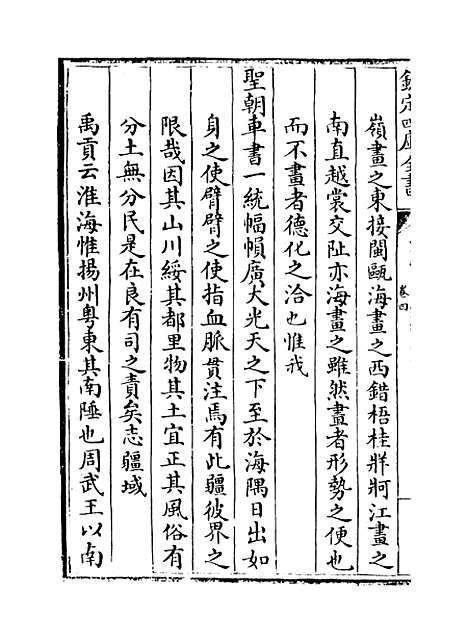 欽定四庫全書
卷四
嶺畫之東接閩甌海畫之西錯梧桂牂牁江畫之
南直越裳交阯亦海畫之雖然畫者形勢之便也
而不畫者德化之洽也惟我
聖朝車書一統幅幀廣大光天之下至於海隅日出如
身之使臂臂之使指血脈貫注焉有此疆彼界之
限哉因其山川綏其都里物其土宜正其風俗有
分土無分民是在良有司之責矣志疆域
禹貢云淮海惟揚州粵東其南陲也周武王以南